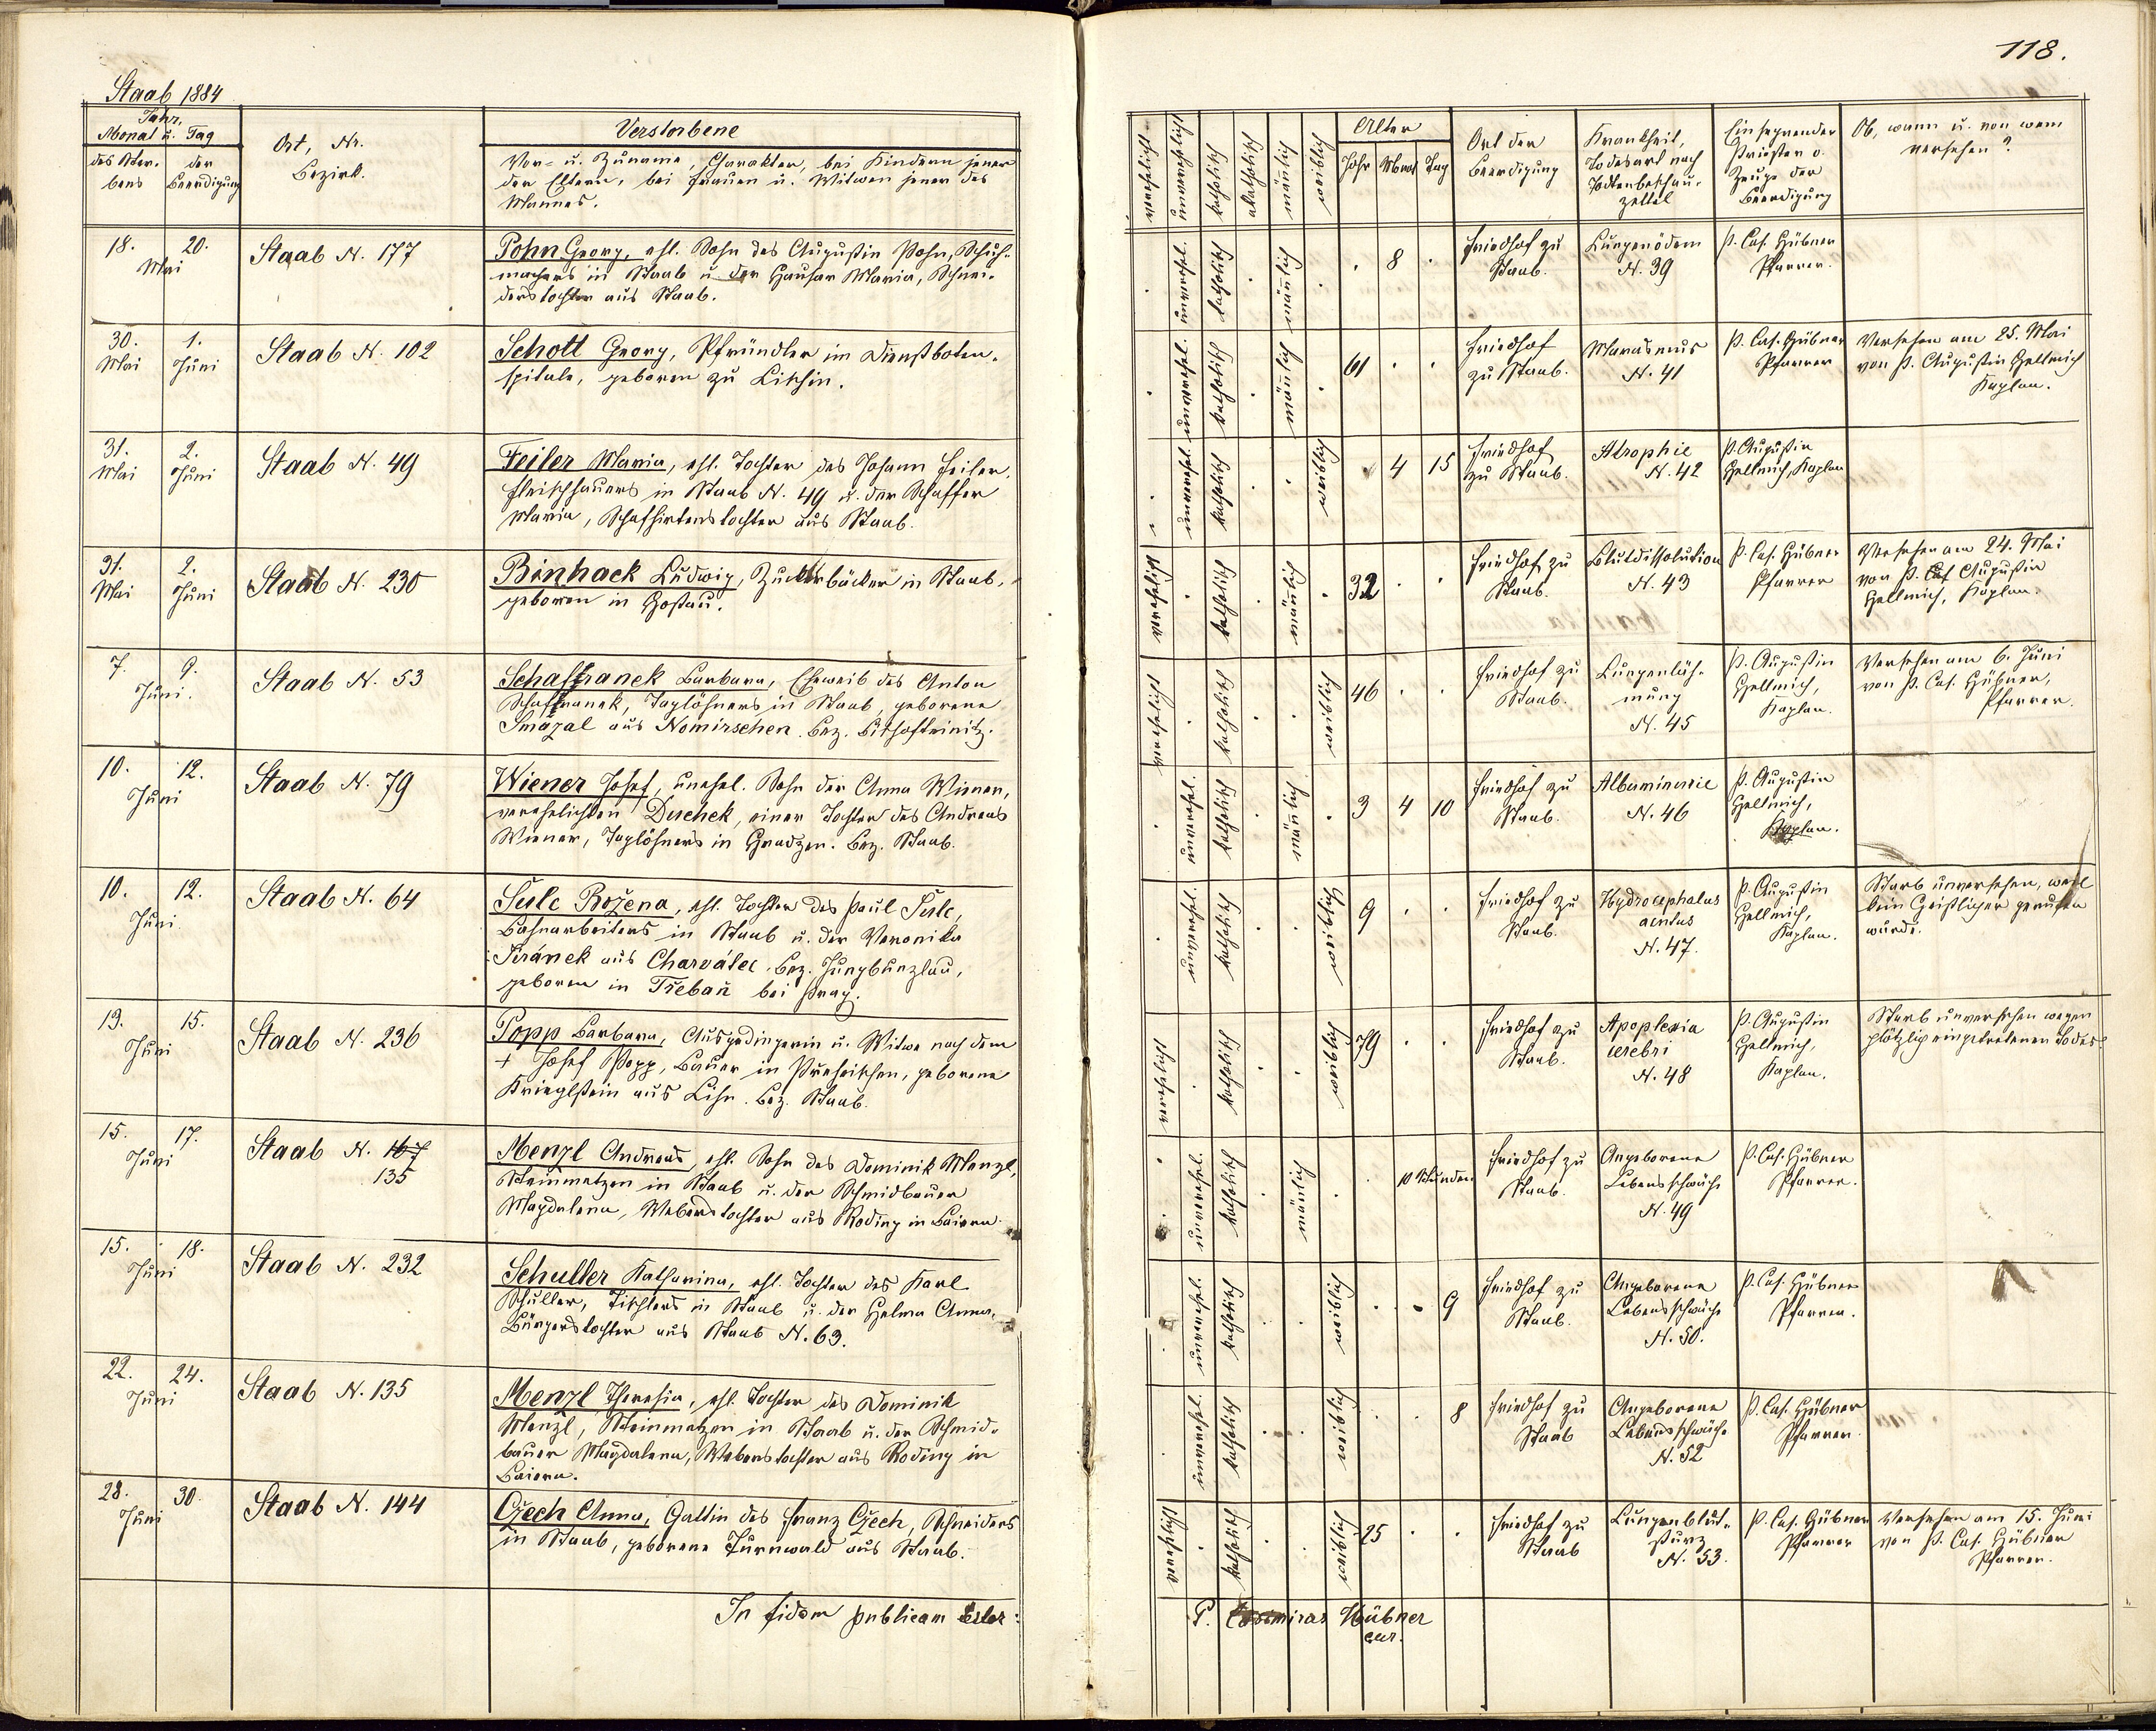 Staab 1884
Jahr,
Monat u. Tag
des Ster-
bens
der
Beerdigung
Ort, Nr.
Bezirk.
Verstorbene
Vor- u. Zuname, Charakter, bei Kindern jener
der Eltern, bei Frauen u. Witwen jener des
Mannes.
18. 20.
Mai
Staab N. 177
Pohn Georg, ehl. Sohn des Augustin Pohn, Schuh-
machers in Staab u. der Hauser Maria, Schnei-
derstochter aus Staab.
30. 1.
Mai Juni
Staab N. 102
Schott Georg, Pfründler im Dienstboten-
spitale, geboren zu Litschin.
31. 2.
Mai Juni
Staab N. 49
Feiler Maria, ehl. Tochter des Johann Feiler,
Fleischhauers in Staab N. 49 u. der Schaffer
Maria, Schafhirtenstochter aus Staab.
31. 2.
Mai Juni
Staab N. 230
Binhack Ludwig, Zuckerbäcker in Staab,
geboren in Hostau.
7. 9.
Juni.
Staab N. 53
Schaffranek Barbara, Eheweib des Anton
Schaffranek, Taglöhners in Staab, geborene
Smazal aus Nomirschen. Bez. Bischofteinitz.
10. 12.
Juni
Staab N. 79
Wiener Josef, unehel. Sohn der Anna Wiener,
verehelichten Duchek, einer Tochter des Andreas
Wiener, Taglöhners in Gradzen. Bez. Staab.
10. 12.
Juni
Staab N. 64
Šulc Božena, ehl. Tochter des Paul Šulc,
Bahnarbeiters in Staab u. der Veronika
Širánek aus Charvátec, Bez. Jungbunzlau,
geboren in Třebaň bei Prag.
13. 15.
Juni
Staab N. 236
Popp Barbara, Ausgedingerin u. Witwe nach dem
+ Josef Popp, Bauer in Preheischen, geborene
Krieglstein aus Lihn. Bez. Staab.
15. 17.
Juni
Staab N. 167
135
Menzl Andreas, ehl. Sohn des Dominik Menzl,
Steinmetzen in Staab u. der Schmidbauer
Magdalena, Weberstochter aus Roding in Baiern.
15. 18.
Juni
Staab N. 232
Schuller Katharina, ehl. Tochter des Karl
Schuller, Tischlers in Staab u. der Helma Anna,
Bürgerstochter aus Staab N. 63.
22. 24.
Juni
Staab N. 135
Menzl Theresia, ehl. Tochter des Dominik
Menzl, Steinmetzen in Staab u. der Schmid-
bauer Magdalena, Weberstochter aus Roding in
Baiern.
28. 30.
Juni
Staab N. 144
Czech Anna, Gattin des Franz Czech, Schneiders
in Staab, geborene Turnwald aus Staab.
In fidem publicam
118.
verehelicht
unverehelicht
katholisch
akatholisch
mänlich
weiblich
Alter
Jahr Monat Tag
Ort der
Beerdigung
Krankheit,
Todesart nach
Todtenbeschau-
zettel
Einsegnender
Priester o.
Zeuge der
Beerdigung
Ob, wann u. von wem
versehen?
unverehel. katholisch mänlich 8
Friedhof zu
Staab.
Lungenödem
N. 39
P. Cas. Hübner
Pfarrer.
unverehel. katholisch mänlich 61
Friedhof
zu Staab.
Marasmus
N. 41
P. Cas. Hübner
Pfarrer
Versehen am 25. Mai
von P. Augustin Hellmich
Kaplan.
unverehel. katholisch weiblich 4 15
Friedhof
zu Staab.
Atrophie
N. 42
P. Augustin
Hellmich, Kaplan
verehelicht katholisch mänlich 32
Friedhof zu
Staab.
Blutdissolution
N. 43
P. Cas. Hübner
Pfarrer
Versehen am 24. Mai
von P. Augustin
Hellmich, Kaplan.
verehelicht katholisch weiblich 46
Friedhof zu
Staab.
Lungenläh-
mung
N. 45
P. Augustin
Hellmich,
Kaplan.
Versehen am 6. Juni
von P. Cas. Hübner,
Pfarrer.
unverehel. katholisch mänlich 3 4 10
Friedhof zu
Staab.
Albuminurie
N. 46
P. Augustin
Hellmich,
Kaplan.
unverehel. katholisch weiblich 9
Friedhof zu
Staab.
Hydrocephalus
acutus
N. 47.
P. Augustin
Hellmich,
Kaplan.
Starb unversehen, weil
kein Geistlicher gerufen
wurde.
verehelicht katholisch weiblich 79
Friedhof zu
Staab.
Apoplexia
cerebri
N. 48
P. Augustin
Hellmich,
Kaplan.
Starb unversehen wegen
plötzlich eingetretenen Todes
unverehel. katholisch mänlich 10 Stunden
Friedhof zu
Staab.
Angeborene
Lebensschwäche
N. 49
P. Cas. Hübner
Pfarrer.
unverehel. katholisch weiblich 9
Friedhof zu
Staab.
Angeborene
Lebensschwäche
N. 50.
P. Cas. Hübner
Pfarrer.
unverehel. katholisch weiblich 8
Friedhof zu
Staab
Angeborene
Lebensschwäche
N. 52
P. Cas. Hübner
Pfarrer.
verehelicht katholisch weiblich 25
Friedhof zu
Staab
Lungenblut-
sturz
N. 53.
P. Cas. Hübner
Pfarrer
Versehen am 15. Juni
von P. Cas. Hübner
Pfarrer.
P. Casimirus Hübner
cur.